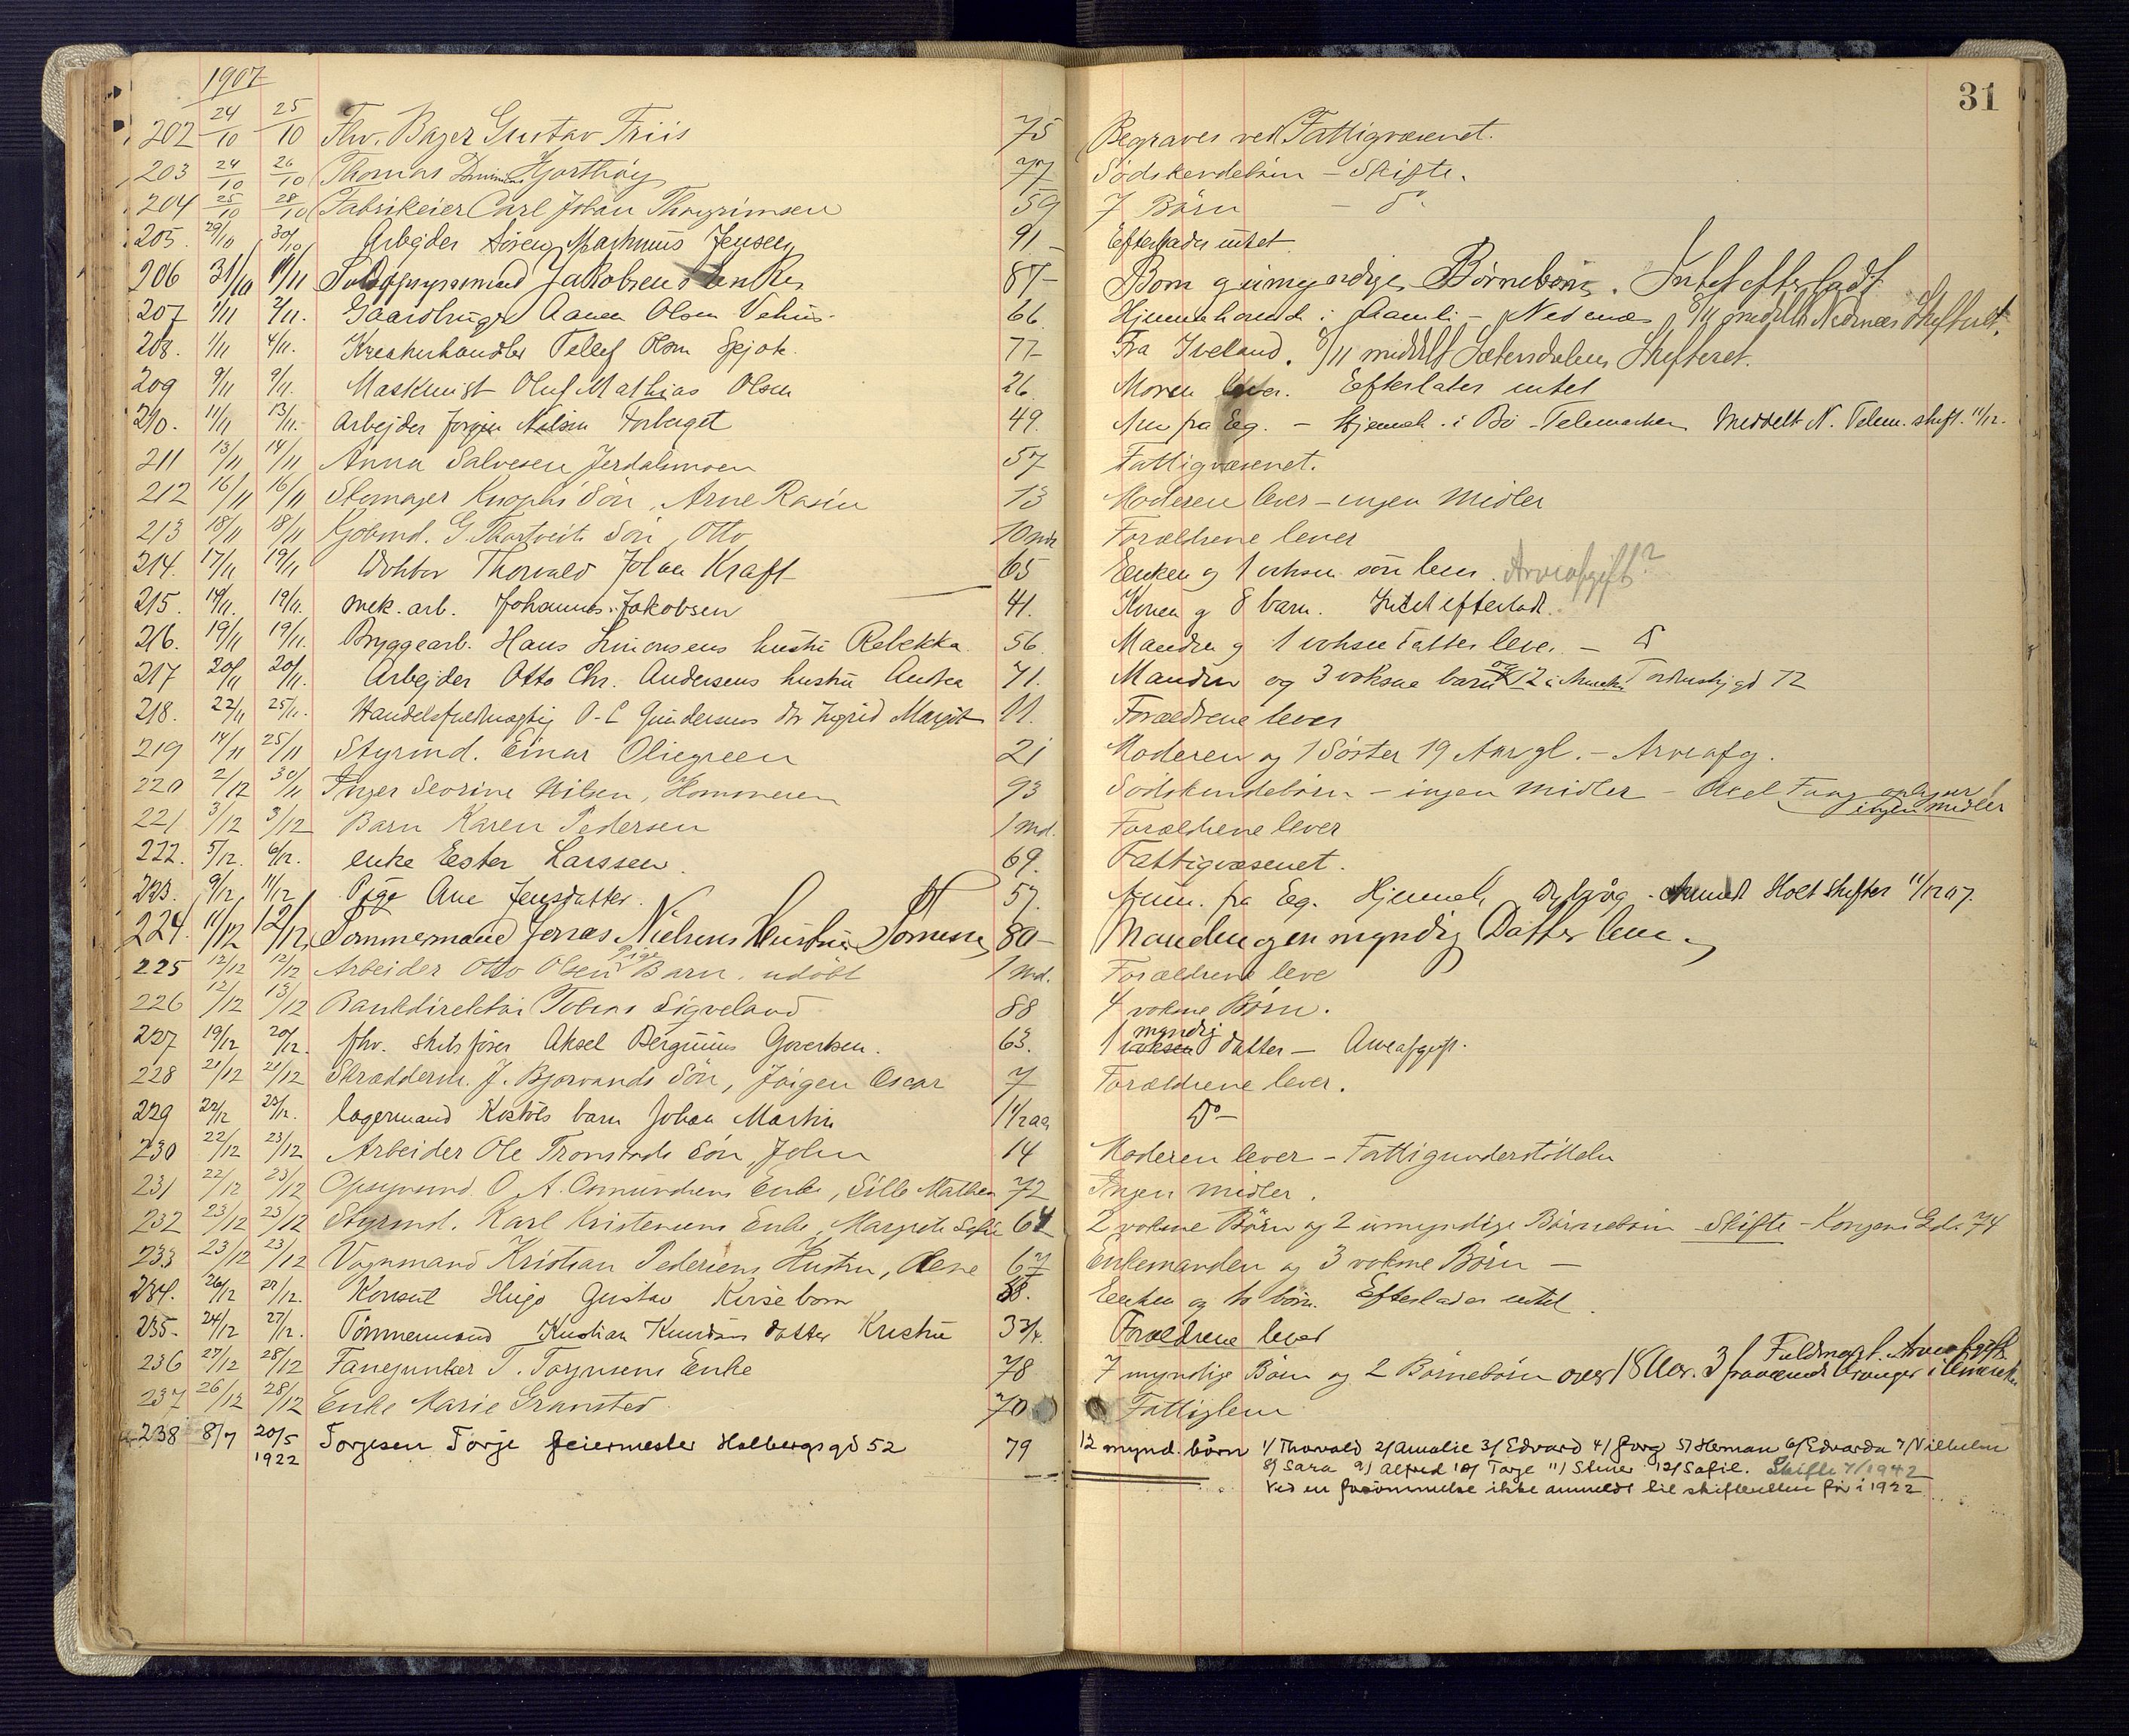 31
1907
202 24/10 25/10 Fhv. Bager Gustav Friis 75 Begraves ved Fattigvæsenet.
203 24/10 26/10 Thomas Hjorthöy 77 Södskendebörn - Skifte.
204 25/10 28/10 Fabrikeier Carl Johan Thorgrimsen 59 7 Börn - Do
205. 29/10 30/10 Arbejder Sören Markinus Jensen 91 - Efterlader intet
206 31/10 1/11 Jakobsens Enke 87 - Börn og umyndige Börnebörn. Intet efterladt
207 1/11 2/11. Gaardbruger Aanen Olsen Vehus. 66. Hjemmehørende i Aamli - Nedenæs 8/11 meddelt Nedenæs Skifteret.
208. 1/11 4/11. Kreaturhandler Tellef Olsen 77 - Fra Iveland. 8/11 meddelt Sætersdalens Skifteret.
209 9/11 9/11. Maskinist Oluf Mathias Olsen 26. Moren lever. Efterlater intet
210. 11/11 13/11. Arbejder Jörgen Nilsen Torberget 49. Anm fra Eg. - Hjemmeh. i Bö - Telemarken Meddelt N. Telem. skift. 11/12.
211 13/11 14/11 Anna Salvesen Jerdalsmoen 57 Fattigvæsenet.
212 16/11 16/11 Skomager Knophs Sön, Arne Rasin 13 Moderen lever - ingen Midler
213 18/11 18/11 Kjöbmd. G. Thortveits Sön, Otto 10 mdr Forældrene lever
214. 17/11 19/11 Doktor Thorvald Johan Kraft 65 Enken og 1 voksen sön lever. Arveafgift?
215. 19/11. 19/11. mek. arb. Johannes Jakobsen 41. Konen og 8 barn. Intet efterladt.
216. 19/11 19/11. Bryggearb. Hans Simonsens hustru Rebekka 56. Manden og 1 voksen datter lever. -
217 20/11 20/11. Arbejder Otto Chr. Andersens hustru Andrea 71. Manden og 3 voksne barn 72
218. 22/11 25/11. Handelsfuldmægtig O. C. Gundersens dtr Ingrid Margit 11. Forældrene lever
219 14/11 25/11 Styrmd. Einar Oliegreen 21 Moderen og 1 Söster 19 Aar gl. - Arveafg.
220 2/12 30/11 Inger Severine Nilsen, Hommeren 93 Södskendebörn - ingen Midler - Axel Faag oplyser ingen midler
221 3/12 3/12 Barn Karen Pedersen 1 md. Forældrene lever
222. 5/12. 6/12. enke Ester Larssen. 69. Fattigvæsenet.
223. 9/12 11/12 Pige Ane Jensdatter. 57. Anm. fra Eg. Hjemmeh. Dybvåg - Anmeldt Holt Skifter 11/12 07.
224. 11/12 12/12 Tømmermand Jonas Nielsens Hustru 80 - Manden og en myndig Datter lever
225 12/12 12/12 Arbeider Otto Olsens Pige Barn. udöbt 1 Md. Forældrene leve
226 12/12 13/12 Bankdirektör Tobias Sigveland 88 4 voksne Börn.
227 19/12 20/12. fhv. skibsförer Aksel Berginius Govertsen. 63. 1 voksen myndig datter - Arveafgift.
228 21/12 21/12 Skræderm. J. Bjorvands Sön, Jörgen Oscar 7 Forældrene lever.
229 22/12 23/12. lagermand Kostöls barn Johan Martin 1 1/2 aar Do -
230 22/12 23/12. Arbeider Ole Tronstads Sön John 14 Moderen lever - Fattigunderstöttelse
231 22/12 23/12 Opsynsmd. O. A. Osmundsens Enke, Sille Mathea 72 Ingen midler.
232 23/12 23/12 Styrmd. Karl Kristensens Enke, Margrete Sofie 64 2 voksne Börn og 2 umyndige Börnebörn Skifte - Kongens Gd. 74
233 23/12 23/12 Vognmand Kristian Pedersens Hustru, Olene 67 Enkemanden og 3 voksne Börn -
234. 26/12 27/12. Konsul Hugo Gustav Kirsebom 58. Enken og to börn. Efterlader intet.
235. 24/12 27/12. Tömmermand Kristian Knudsens datter Kristine 3 3/4. Forældrene lever
236 27/12 28/12 Fanejunker T. Torjusens Enke 78 7 myndige Börn og 2 Börnebörn over 18 Aar. 3 fraværende Arvinger i Amerika Fuldmagt. Arveafgift.
237 26/12 28/12 Enke Marie Gransted 70 Fattiglem
238 8/7 20/5 1922 Torjesen Torje feiermester Holbergsgd 52 79 12 mynd. börn 1/ Thorvald 2/ Amalie 3/ Edvard 4/ Georg 5/ Herman 6/ Edvarda 7/ Vilhelm
8/ Sara 9/ Alfred 10/ Torje 11/ Stener 12/ Sofie. Skifte 7/1942
Ved en forsömmelse ikke anmeldt til skifteretten för i 1922